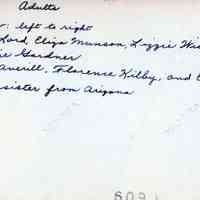 Adults
: left to right
Lord, Eliza Munson, Lizzie Wis
ie Gardner
Averill, Florence Kilby, and
sister from Arizona